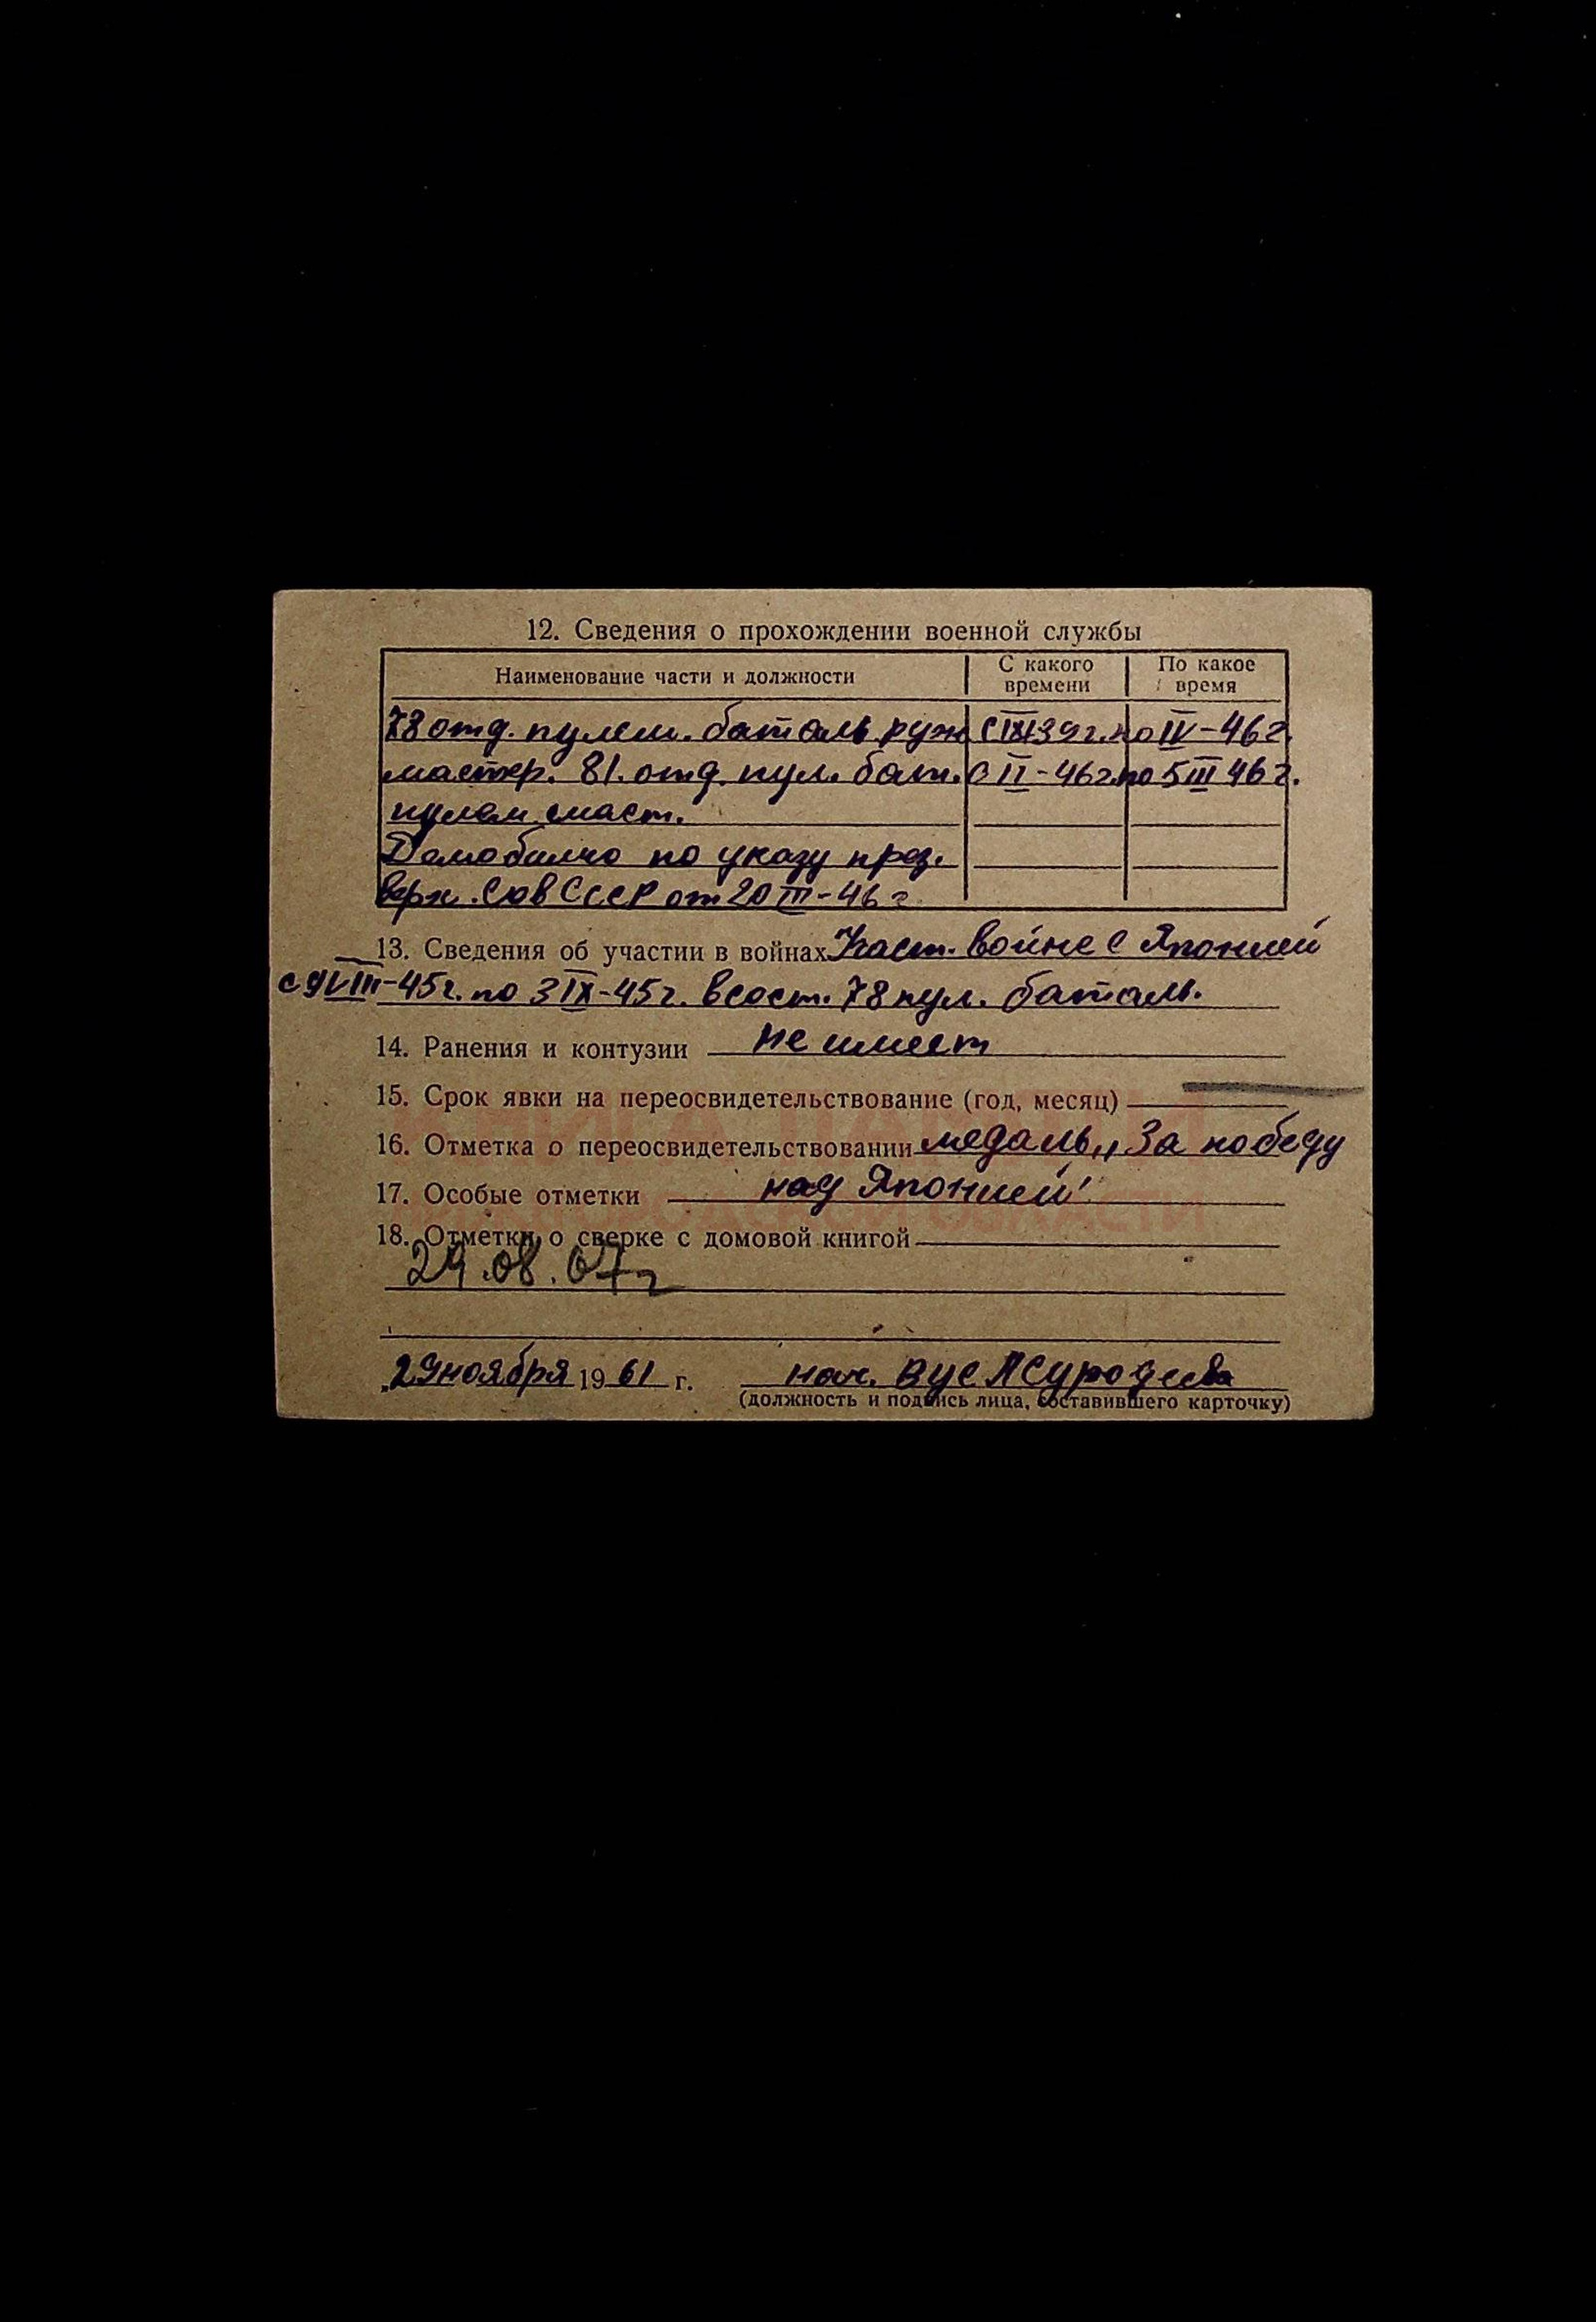 12. Сведения о прохождении военной службы
Наименование части и должности
С какого времени
По какое время
78 отд. пулем. баталь. руж. с IX 39 г. по IV-46 г.
мастер. 81. отд. пул. бат. с II-46 г. по 5 III 46 г.
пулем. маст.
по указу през.
верх. Сов СССР от 20 III-46 г
13. Сведения об участии в войнах Участ. войне с Японией
с 9 VIII-45 г. по 3 IX-45 г. в сост. 78 пул. баталь.
14. Ранения и контузии не имеет
15. Срок явки на переосвидетельствование (год, месяц)
16. Отметка о переосвидетельствовании медаль „За победу
17. Особые отметки над Японией"
18. Отметки о сверке с домовой книгой
29.08.67 г
„29 ноября 1961 г. нач. ВУС
(должность и подпись лица, составившего карточку)
КНИГА ПАМЯТИ
НИЖЕГОРОДСКОЙ ОБЛАСТИ